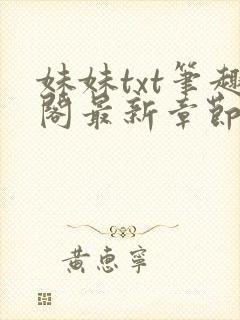 妹妹txt筆趣
閣最新章節
黃惠寧